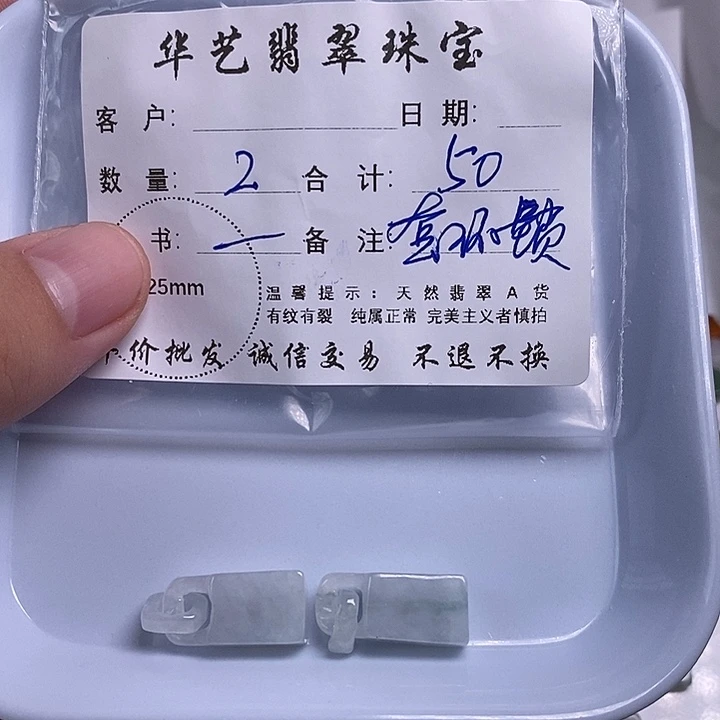 华艺翡翠珠宝
客户: 日期:
数量: 2 合计: 50
书: 一 备注: 套环锁
25mm
温馨提示: 天然翡翠A货
有纹有裂 纯属正常 完美主义者慎拍
价批发 诚信交易 不退不换